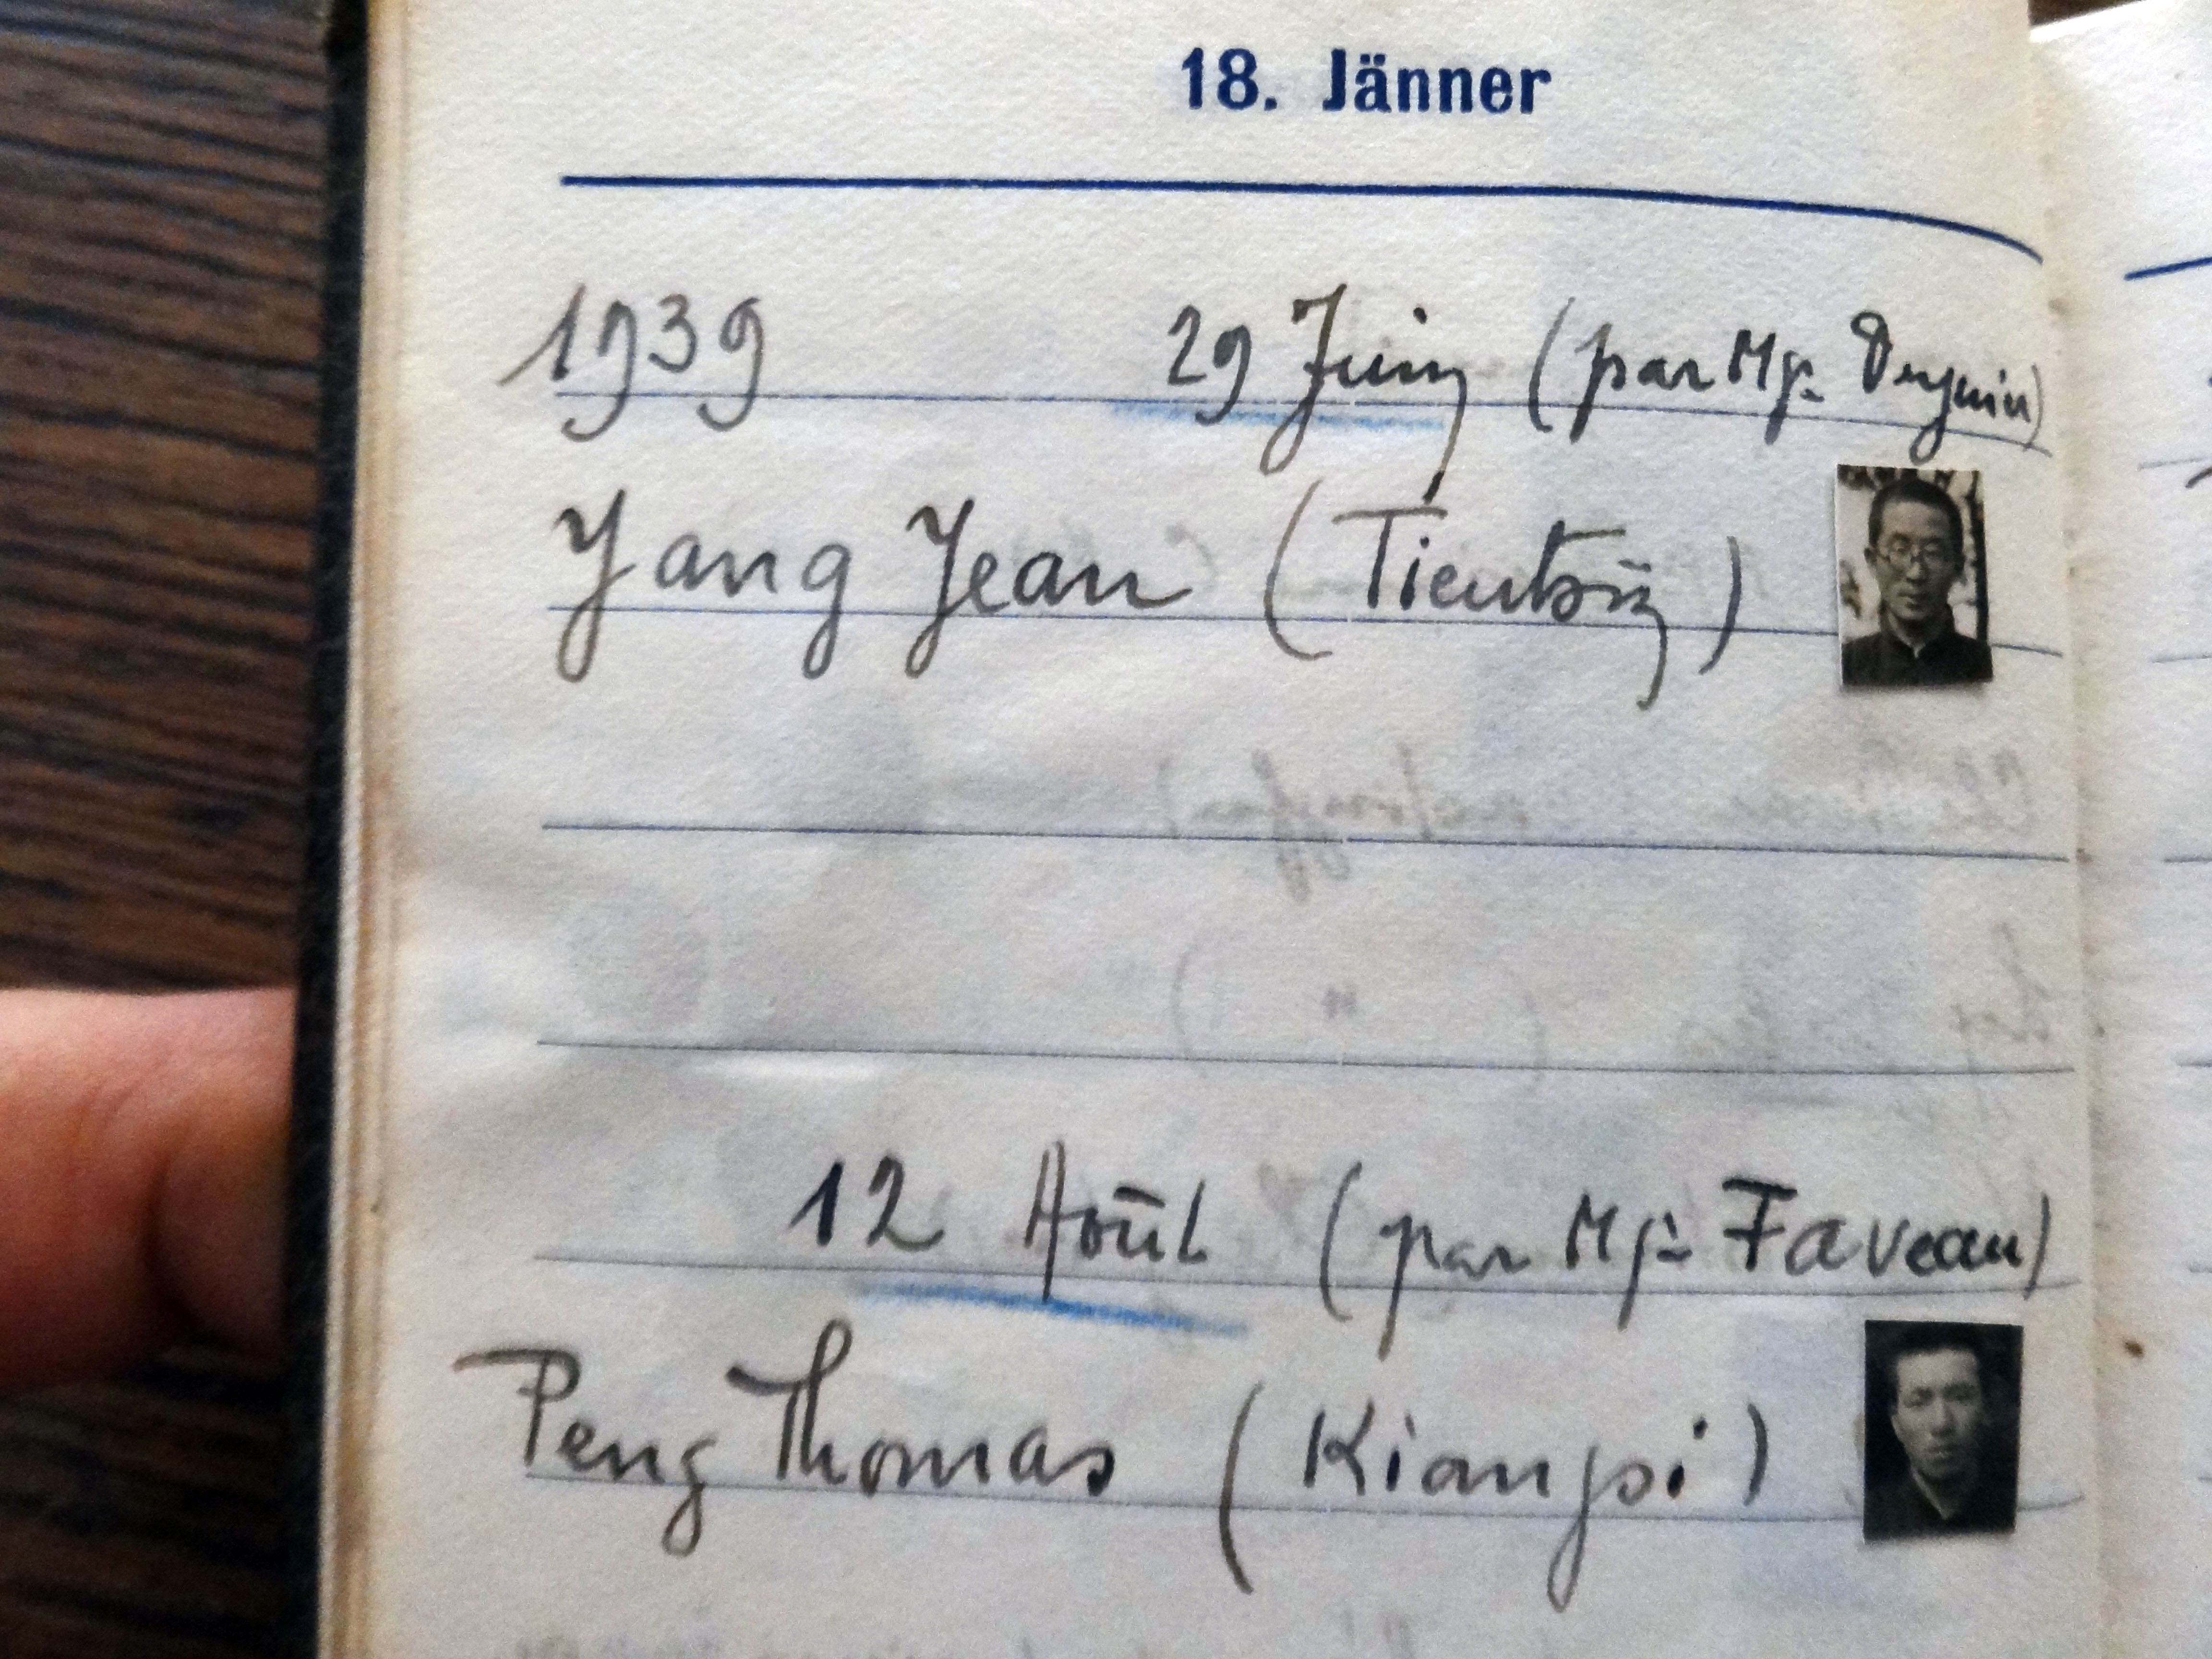 18. Jänner
1939 29 Juin (par Mgr
Yang Jean (Tientsin)
12 Août (par Mgr Faveau)
Peng Thomas (Kiangsi)